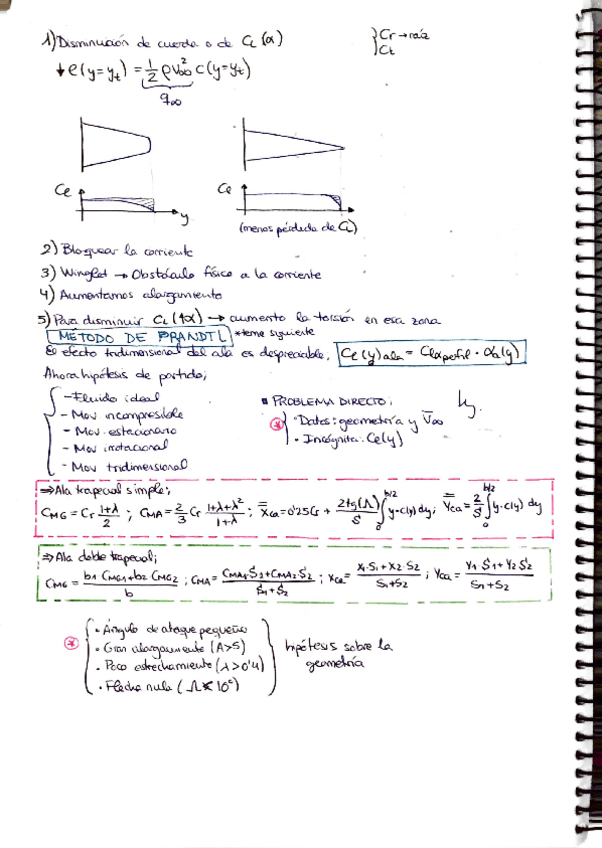 1) Disminución de cuerda o de CL(α)
} Cr → raíz
Ct
↓ l(y=yt) = 1/2 ρ V∞² c(y=yt)
q∞
Cl
y
Cl
(menos pérdida de CL)
2) Bloquear la corriente
3) Winglet → Obstáculo físico a la corriente
4) Aumentamos alargamiento
5) Para disminuir CL(↑α) → aumento la torsión en esa zona
MÉTODO DE PRANDTL *tema siguiente
El efecto tridimensional del ala es despreciable, Cl(y)ala = Clα perfil · αa(y)
Ahora hipótesis de partida;
- Fluido ideal
- Mov incompresible
- Mov. estacionario
- Mov irrotacional
- Mov tridimensional
■ PROBLEMA DIRECTO:
* · Datos: geometría y V∞
· Incógnita: Cl(y)
⇒ Ala trapecial simple;
CMG = Cr (1+λ)/2 ; CMA = 2/3 Cr (1+λ+λ²)/(1+λ) ; Xca = 0'25Cr + 2tg(Λ)/S ∫₀^(b/2) y·c(y) dy; Yca = 2/S ∫₀^(b/2) y·c(y) dy
⇒ Ala doble trapecial;
CMG = (b1 CMG1 + b2 CMG2)/b ; CMA = (CMA1 S1 + CMA2 S2)/(S1+S2) ; Xca = (X1·S1 + X2·S2)/(S1+S2) ; Yca = (Y1 S1 + Y2 S2)/(S1+S2)
* · Ángulo de ataque pequeño
· Gran alargamiento (A>5)
· Poco estrechamiento (λ>0'4)
· Flecha nula (Λ<10°)
hipótesis sobre la
geometría